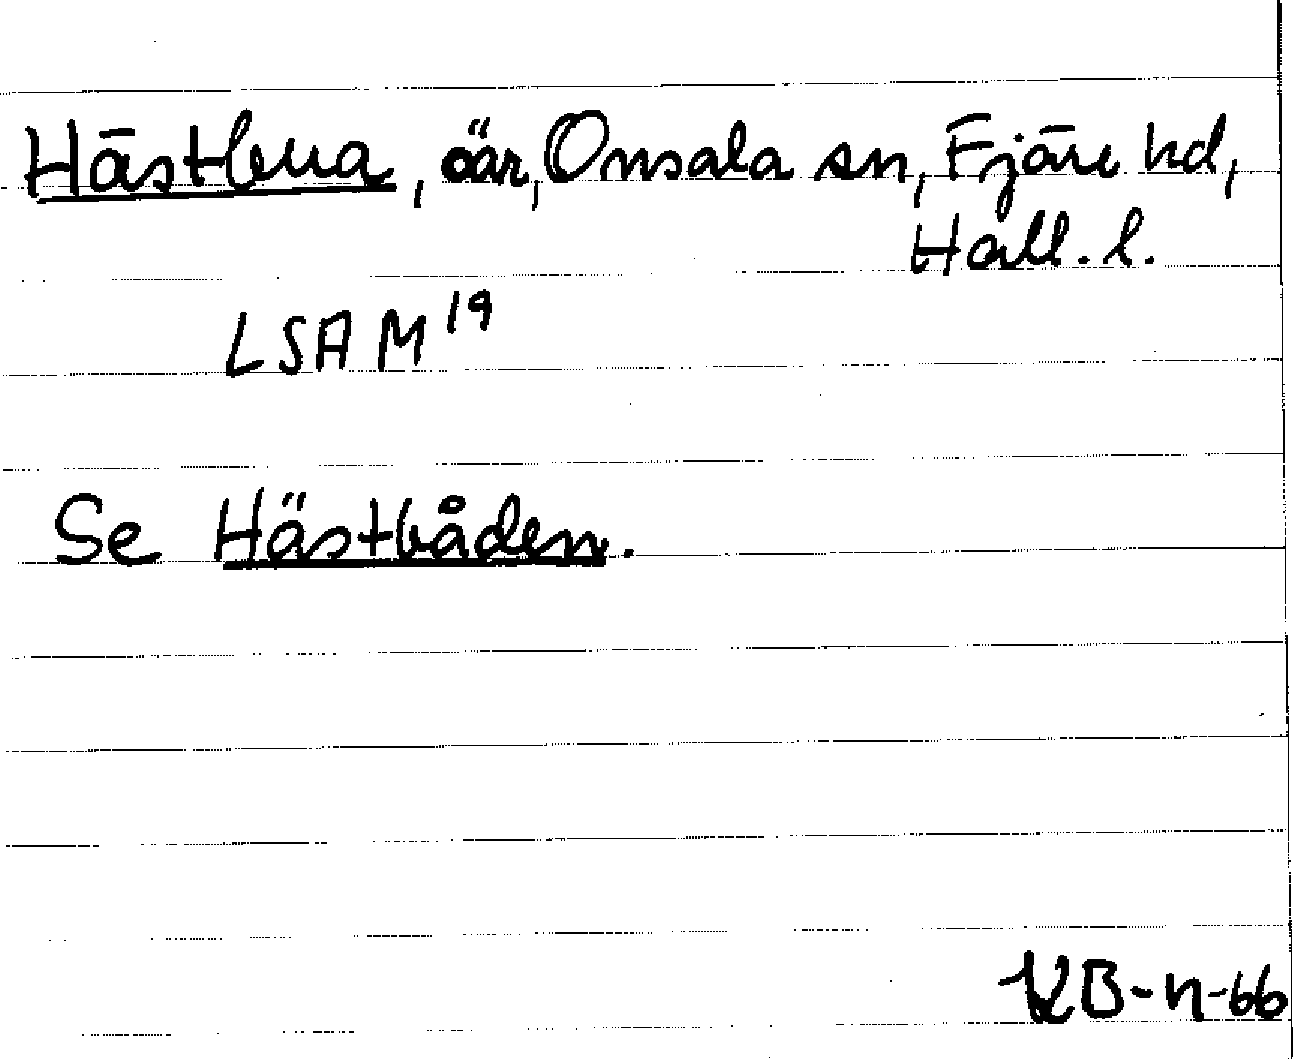 Hästbua, öar, Onsala sn, Fjäre hd,
Hall. l.
LSA M 19
Se Hästbåden.
KB-n-66